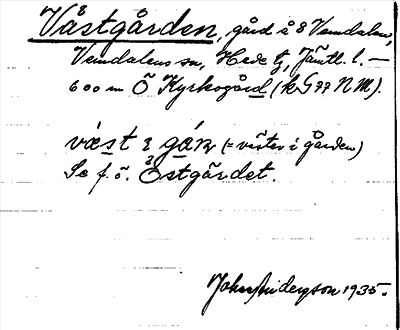 Västgården, gård å 8 Vemdalen,
Vemdalens sn, Hede tg, Jämtl. l. —
600 m Ö Kyrkogård (kG77NM).
väst i gárn (= väster i gården)
Se f. ö. Östgärdet.
John Andersson 1935.